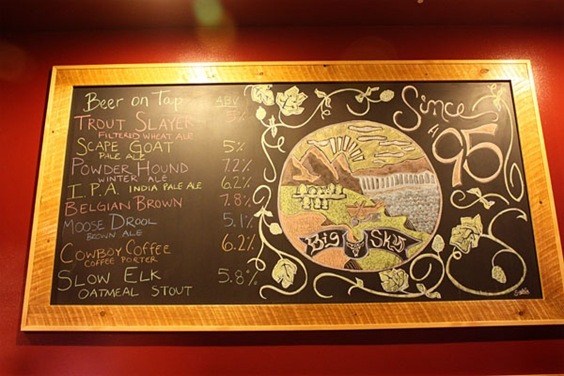 Beer on Tap ABV
TROUT SLAYER 5%
FILTERED WHEAT ALE
SCAPE GOAT 5%
PALE ALE
POWDER HOUND 7.2%
WINTER ALE
I.P.A. INDIA PALE ALE 6.2%
BELGIAN BROWN 7.8%
MOOSE DROOL 5.1%
BROWN ALE
COWBOY COFFEE 6.2%
COFFEE PORTER
SLOW ELK 5.8%
OATMEAL STOUT
Since
'95
Big Sky